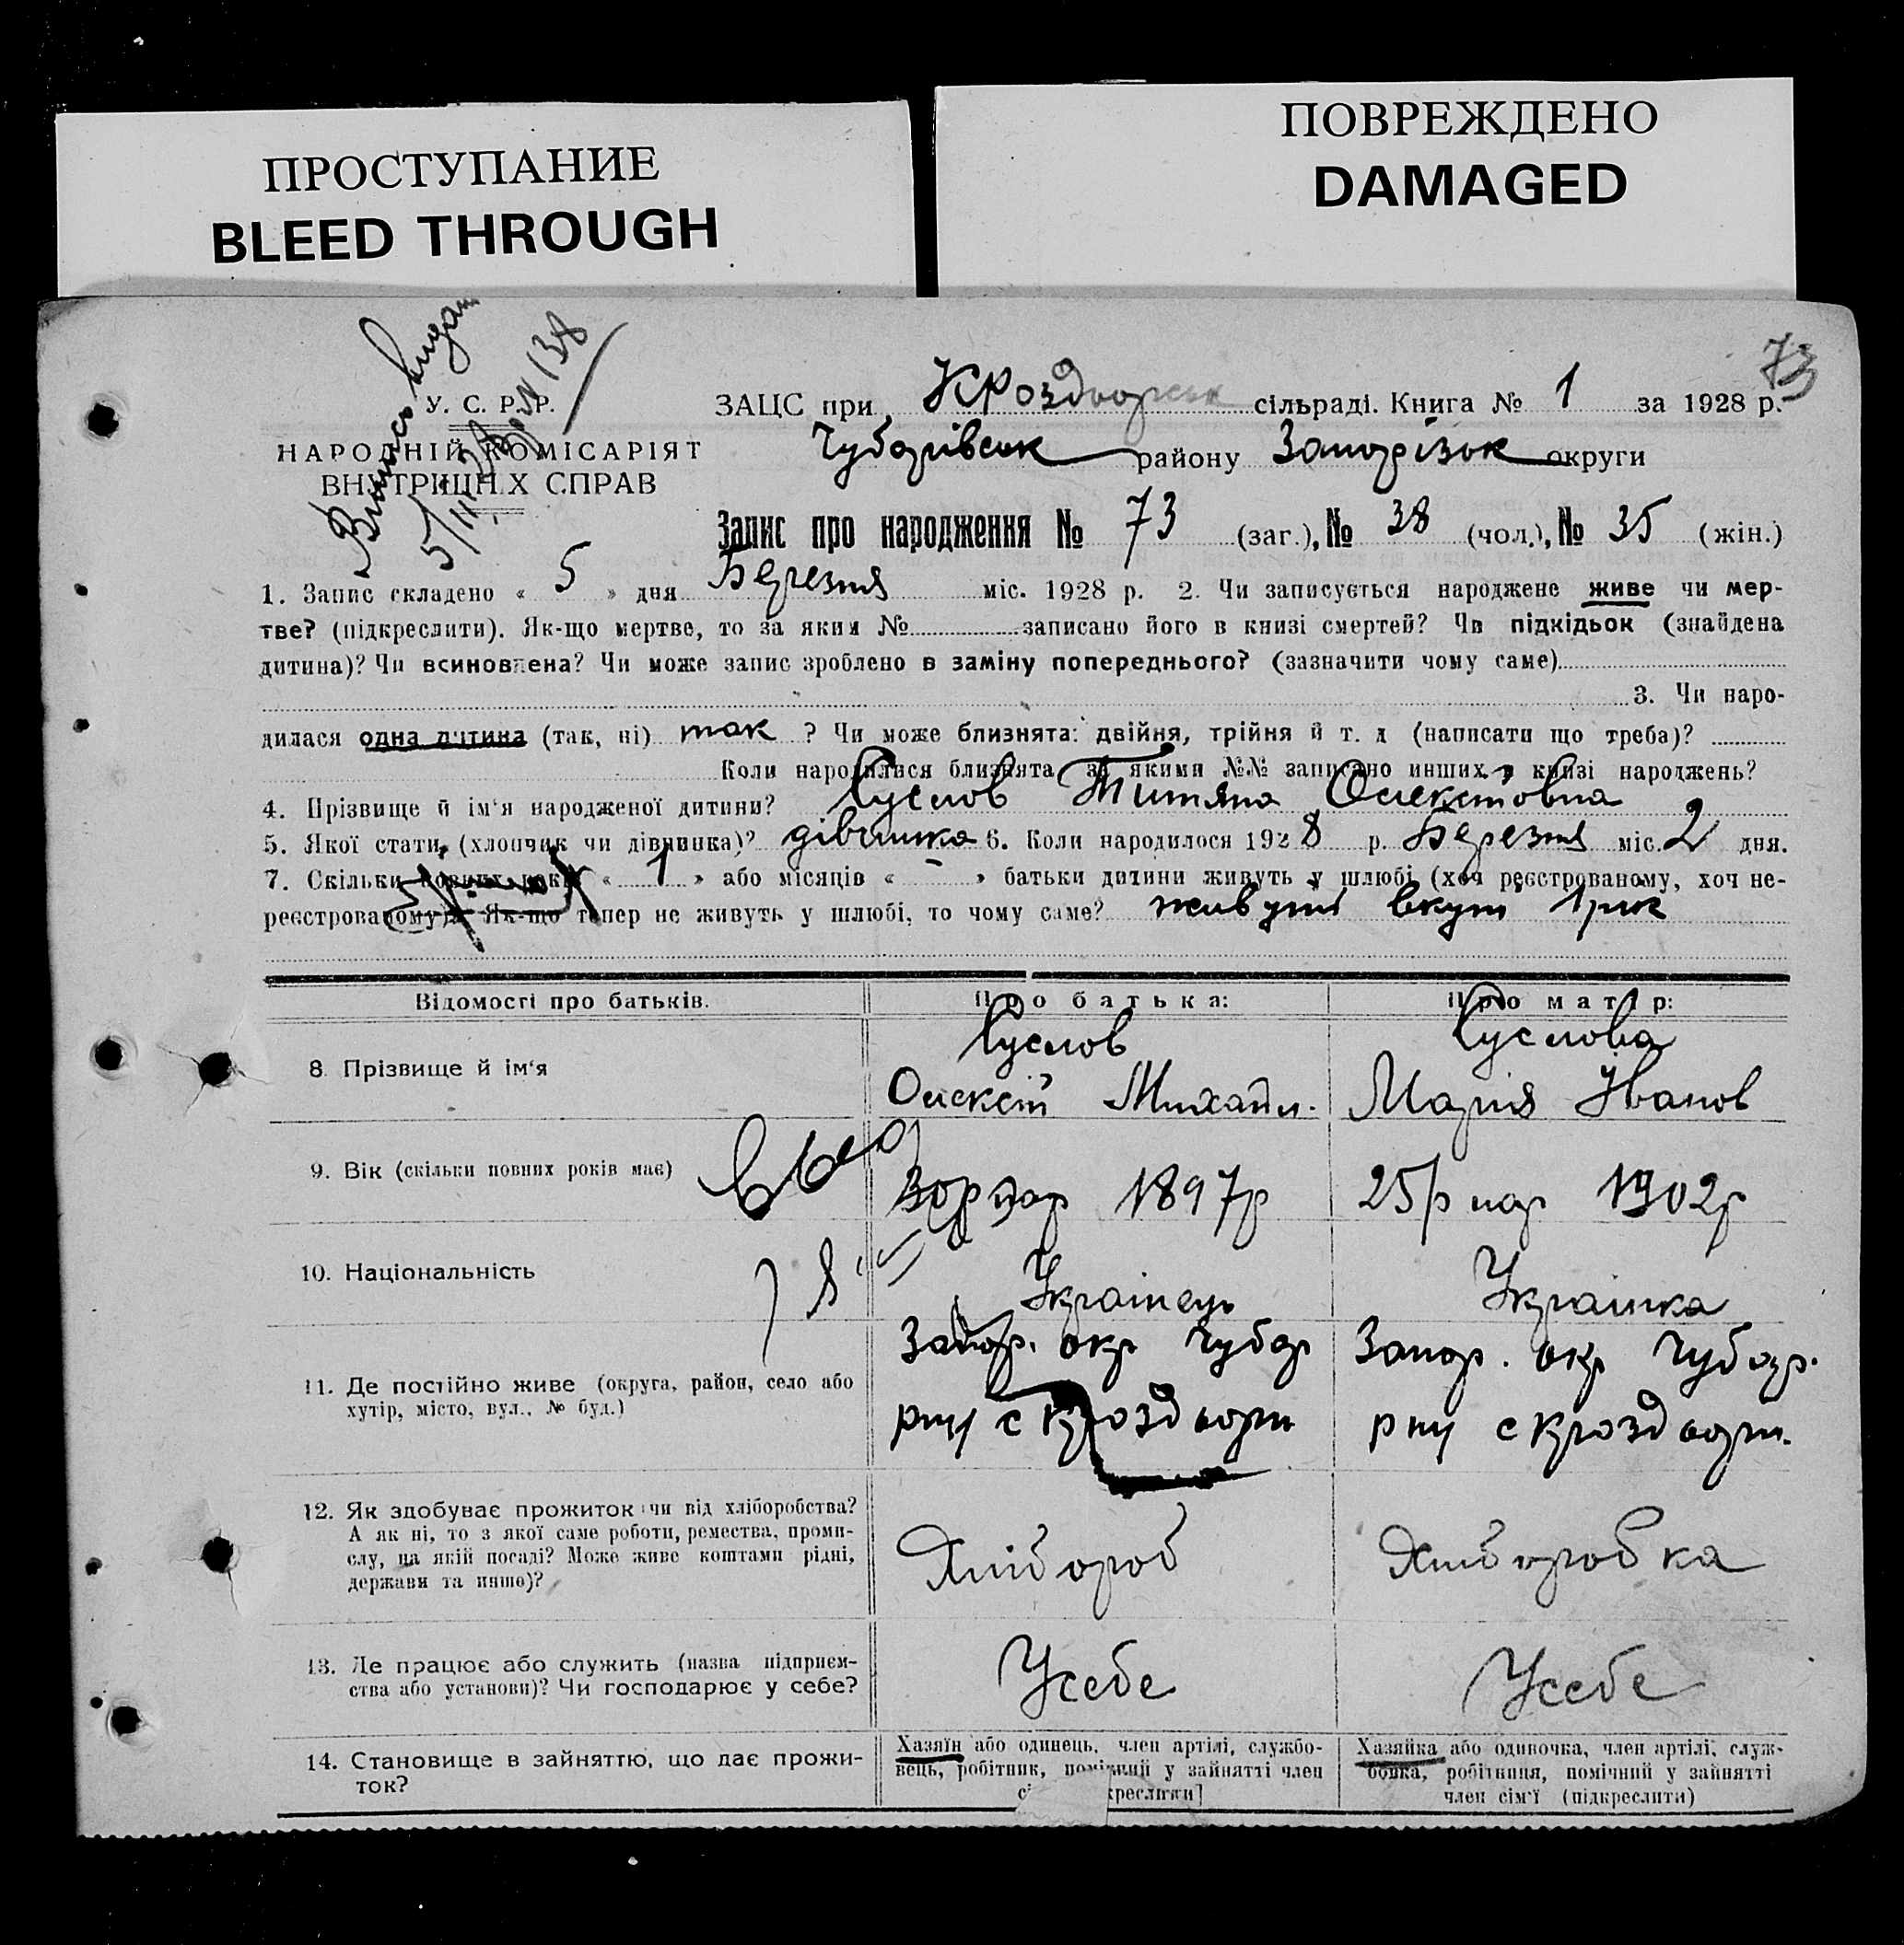 ПРОСТУПАНИЕ
BLEED THROUGH
ПОВРЕЖДЕНО
DAMAGED
73
У. С. Р. Р.
НАРОДНІЙ КОМІСАРІЯТ
ВНУТРІШНІХ СПРАВ
ЗАЦС при КРоздорськ сільраді. Книга № 1 за 1928 р.
Чубарівськ району Запорізьк округи
Запис про народження № 73 (заг.), № 38 (чол.), № 35 (жін.)
1. Запис складено « 5 » дня Березня міс. 1928 р. 2. Чи записується народжене живе чи мер-
тве? (підкреслити). Як-що мертве, то за яким № записано його в книзі смертей? Чи підкідьок (знайдена
дитина)? Чи всиновлена? Чи може запис зроблено в заміну попереднього? (зазначити чому саме)
3. Чи наро-
дилася одна дитина (так, ні) так ? Чи може близнята: двійня, трійня й т. д (написати що треба)?
Коли народилися близнята за якими №№ записано инших в книзі народжень?
4. Прізвище й ім'я народженої дитини? Суслов Титяна
5. Якої стати, (хлопчик чи дівчинка)? дівчинка 6. Коли народилося 1928 р. Березня міс. 2 дня.
7. Скільки повних років « 1 » або місяців « - » батьки дитини живуть у шлюбі (хоч реєстрованому, хоч не-
реєстрованому). Як-що тепер не живуть у шлюбі, то чому саме? живуть вкупі 1 рик
Відомості про батьків. Про батька: Про матір:
Суслов Суслова
8. Прізвище й ім'я
Олексій Михайл. Марія Іванов
9. Вік (скільки повних років має) нар 1897р 25р нар 1902р
10. Національність Українець Українка
Запор. окр Чубар Запор. окр Чубар.
11. Де постійно живе (округа, район, село або
хутір, місто, вул., № буд.)
рну с Кроздори рну с Кроздори.
12. Як здобуває прожиток чи від хліборобства?
А як ні, то з якої саме роботи, ремества, проми-
слу, на якій посаді? Може живе коштами рідні,
держави та инше)?
Хлібороб Хліборобка
13. Де працює або служить (назва підприєм-
ства або установи)? Чи господарює у себе?
Усебе Усебе
14. Становище в зайняттю, що дає прожи-
ток?
Хазяїн або одинець, член артілі, службо-
вець, робітник, помічний у зайнятті член
креслити]
Хазяйка або одиночка, член артілі, служ-
бовка, робітниця, помічний у зайнятті
член сім'ї (підкреслити)